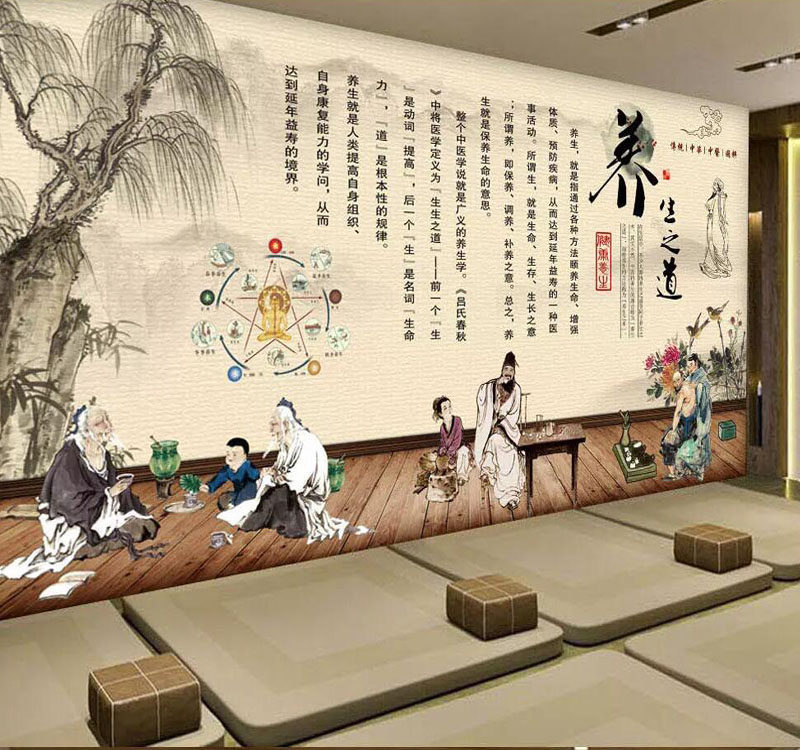 传统|中华|中医|国粹
养生之道
健康养生
养生,就是指通过各种方法颐养生命、增强
体质、预防疾病,从而达到延年益寿的一种医
事活动。所谓生,就是生命、生存、生长之意
;所谓养,即保养、调养、补养之意。总之,养
生就是保养生命的意思。
整个中医学说就是广义的养生学。《吕氏春秋
》中将医学定义为『生生之道』——前一个『生
』是动词『提高』,后一个『生』是名词『生命
力』,『道』是根本性的规律。
养生就是人类提高自身组织、
自身康复能力的学问,从而
达到延年益寿的境界。